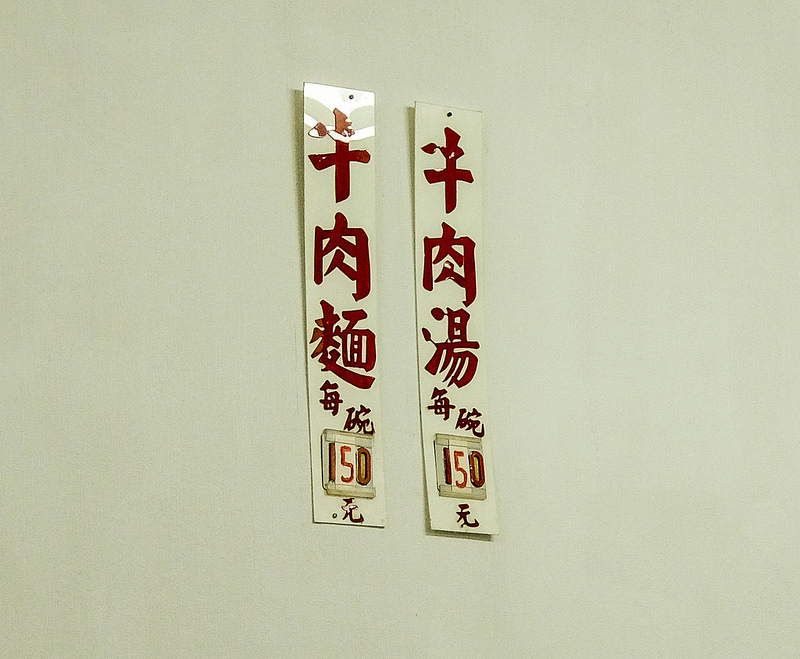 牛肉湯每碗150元
牛肉麵每碗150元